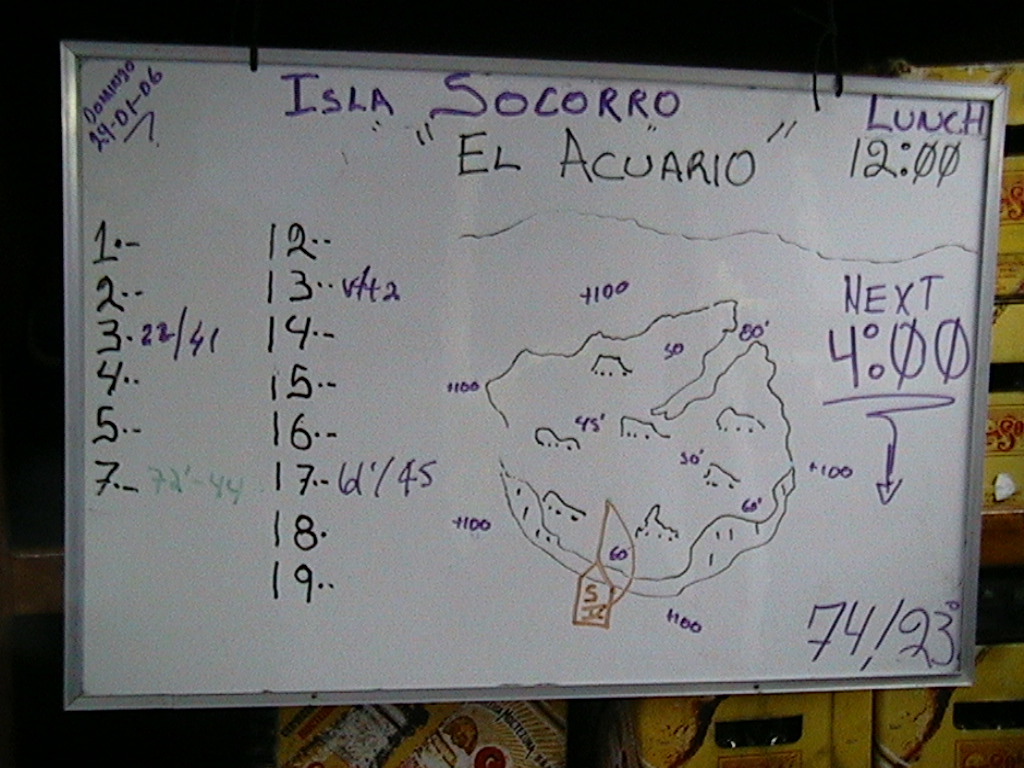 DOMINGO
29-01-06
ISLA SOCORRO
"EL ACUARIO"
LUNCH
12:00
1.-
2.-
3. 22/41
4..
5.-
7.- 72'-44
12..
13..
14.-
15.-
16.-
17.- 61'/45
18.
19..
NEXT
4:00
+100
80'
50
+100
45'
50'
+100
60'
+100
60
+100
74/23°